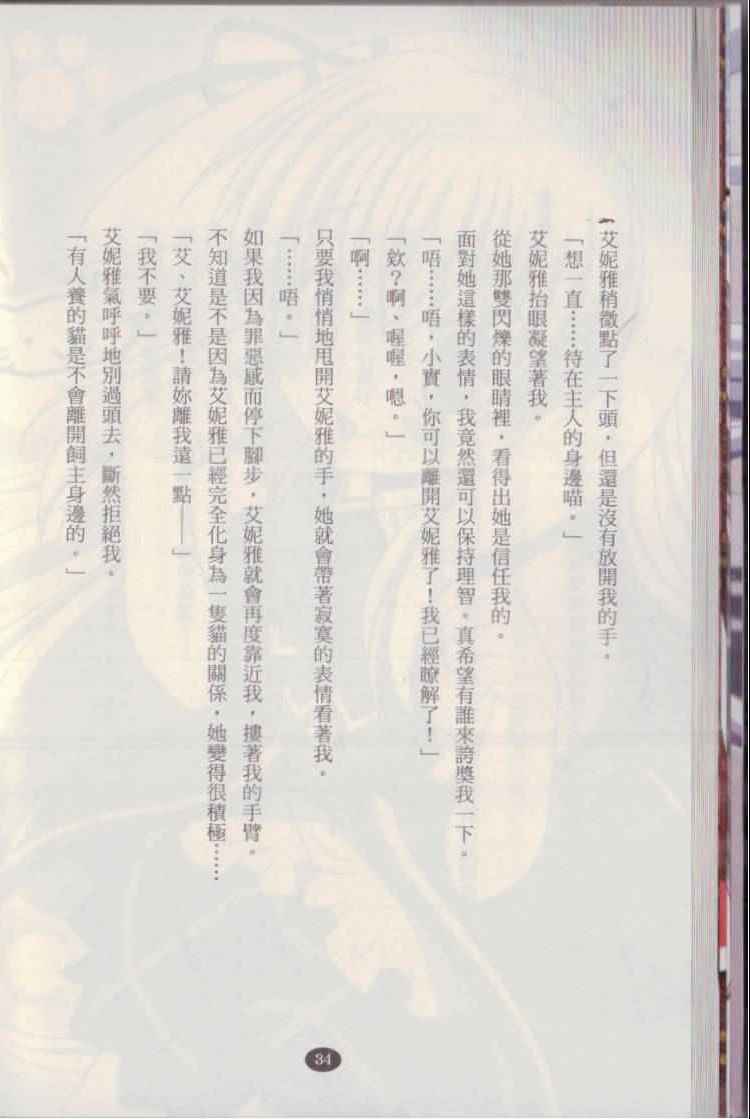 艾妮雅稍微點了一下頭，但還是沒有放開我的手。
「想一直……待在主人的身邊喵。」
艾妮雅抬眼凝望著我。
從她那雙閃爍的眼睛裡，看得出她是信任我的。
面對她這樣的表情，我竟然還可以保持理智。真希望有誰來誇獎我一下。
「唔……唔，小實，你可以離開艾妮雅了！我已經瞭解了！」
「欸？啊、喔喔，嗯。」
「啊……」
只要我悄悄地甩開艾妮雅的手，她就會帶著寂寞的表情看著我。
「……唔。」
如果我因為罪惡感而停下腳步，艾妮雅就會再度靠近我，摟著我的手臂。
不知道是不是因為艾妮雅已經完全化身為一隻貓的關係，她變得很積極……
「艾、艾妮雅！請妳離我遠一點——」
「我不要。」
艾妮雅氣呼呼地別過頭去，斷然拒絕我。
「有人養的貓是不會離開飼主身邊的。」
34